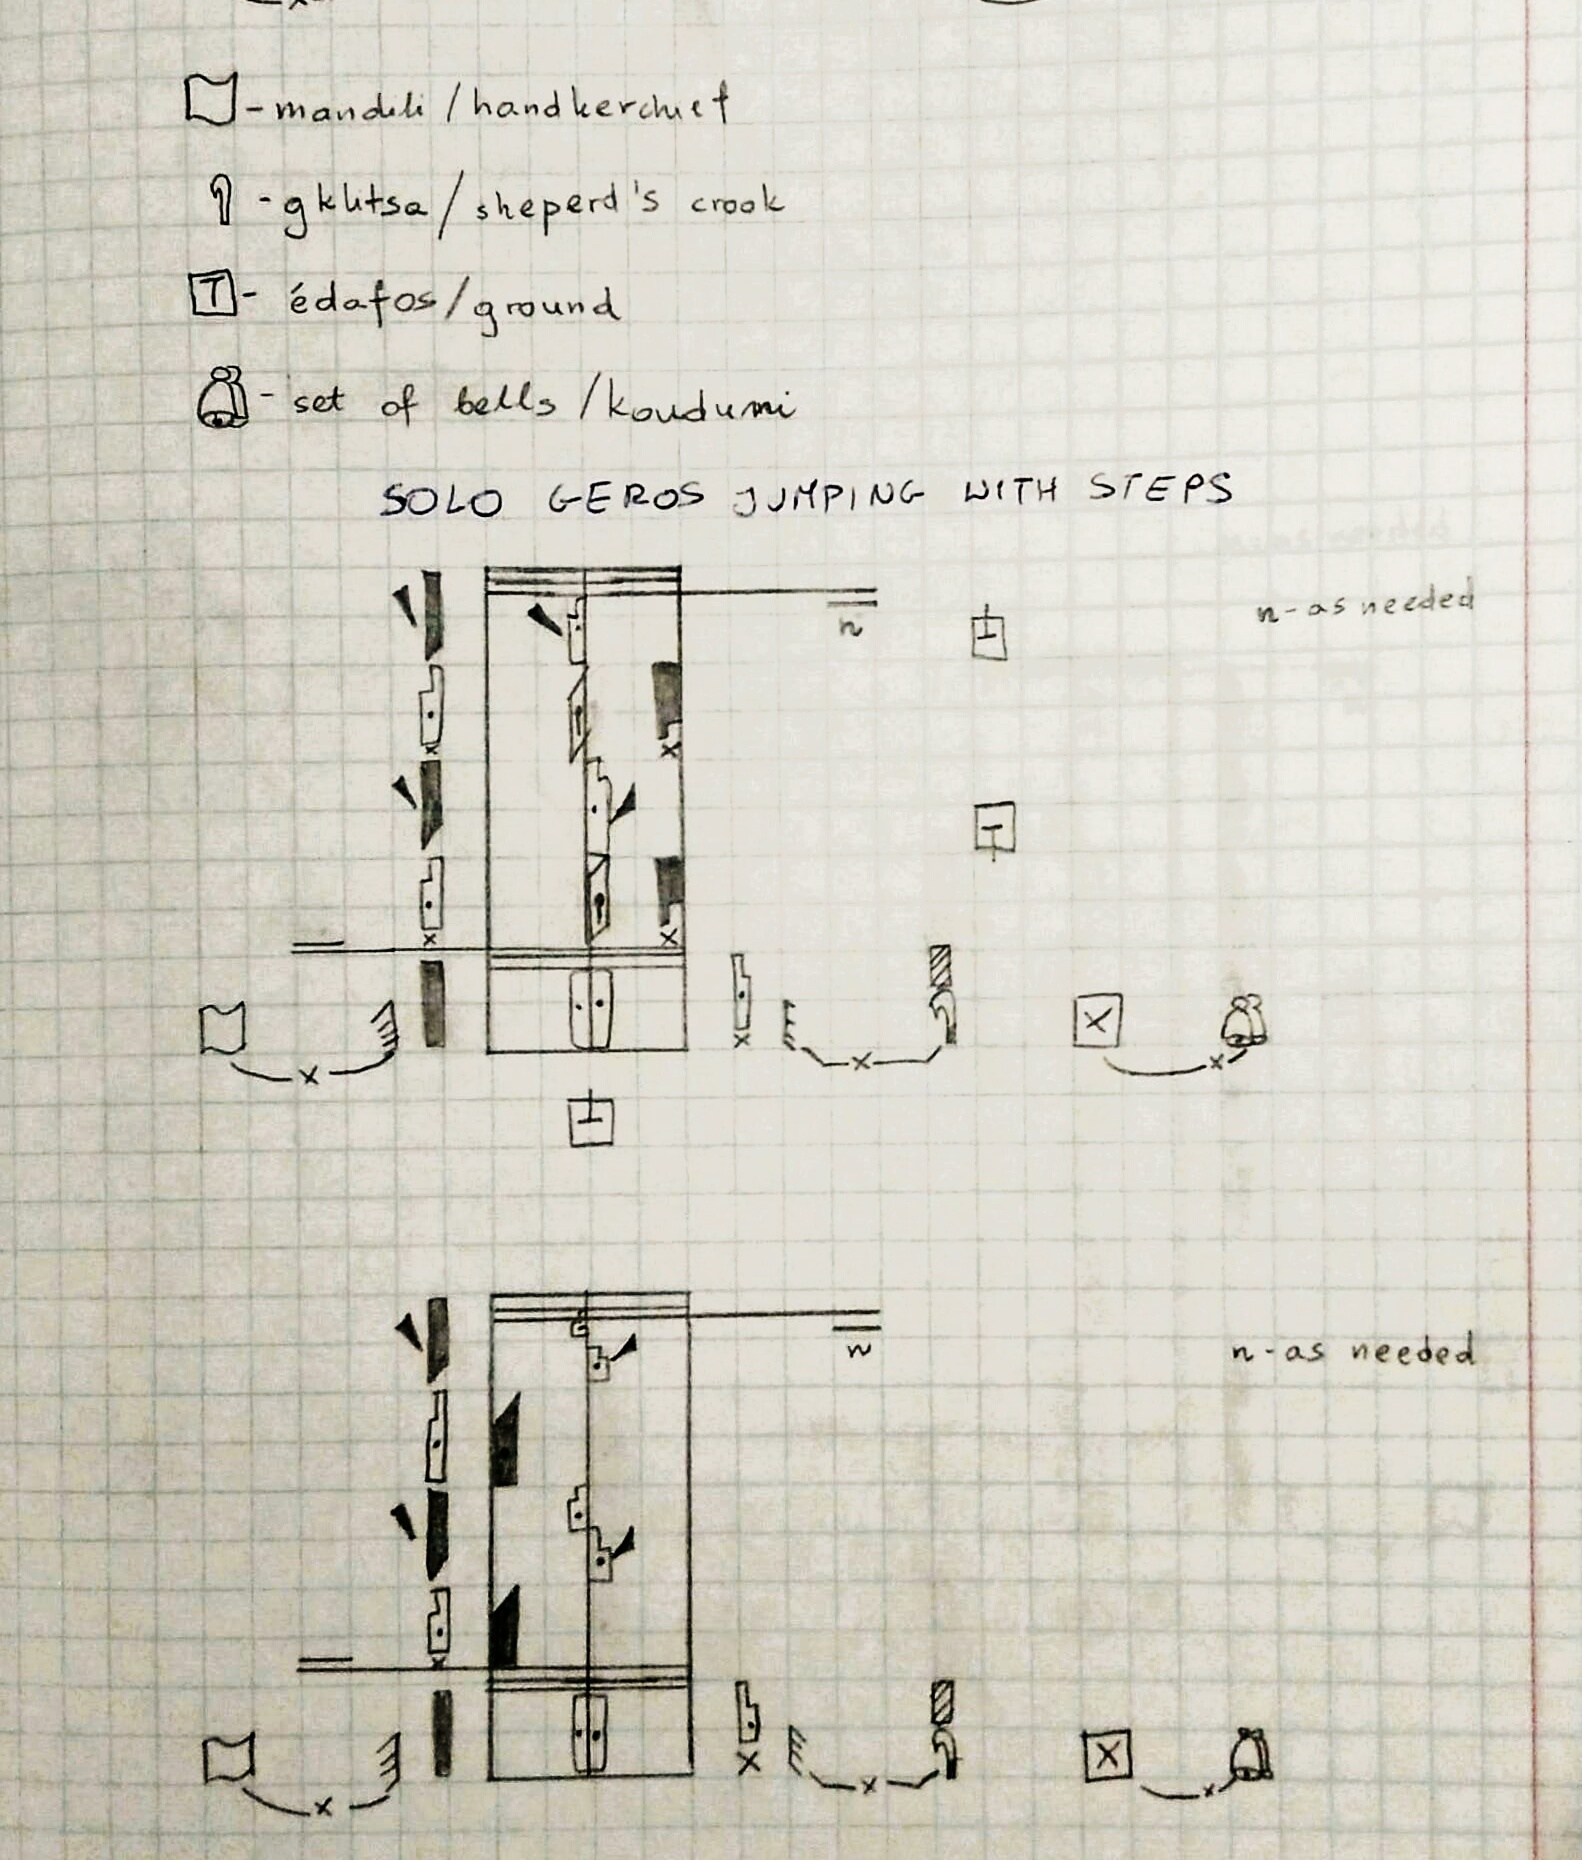 - mandili / handkerchief
- gklitsa / sheperd's crook
T - édafos / ground
- set of bells / koudumi
SOLO GEROS JUMPING WITH STEPS
n - as needed
n
n - as needed
n